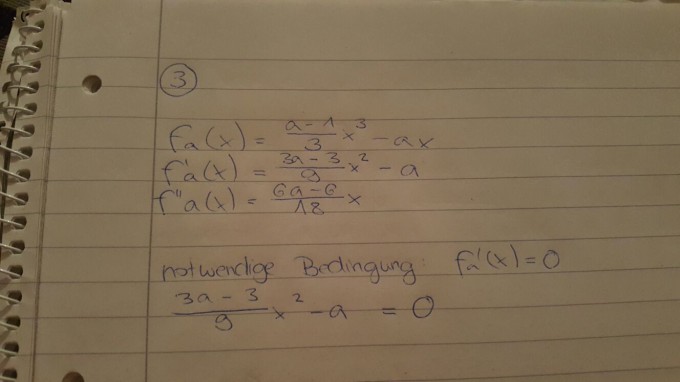 3
fa(x) = a-1/3 x³ - ax
f'a(x) = 3a-3/9 x² - a
f"a(x) = 6a-6/18 x
notwendige Bedingung: fa'(x) = 0
3a-3/9 x² - a = 0